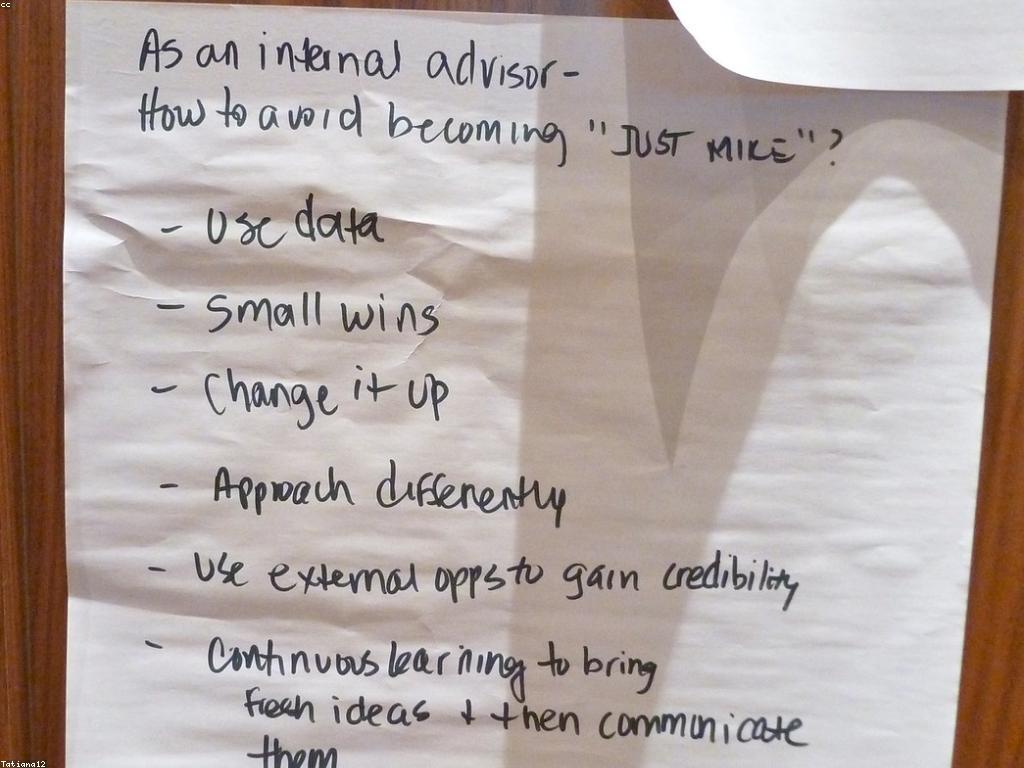 cc
As an internal advisor-
How to avoid becoming "JUST MIKE"?
- Use data
- Small wins
- Change it up
- Approach differently
- Use external opps to gain credibility
- Continuous learning to bring
fresh ideas + then communicate
them
Tatiana12